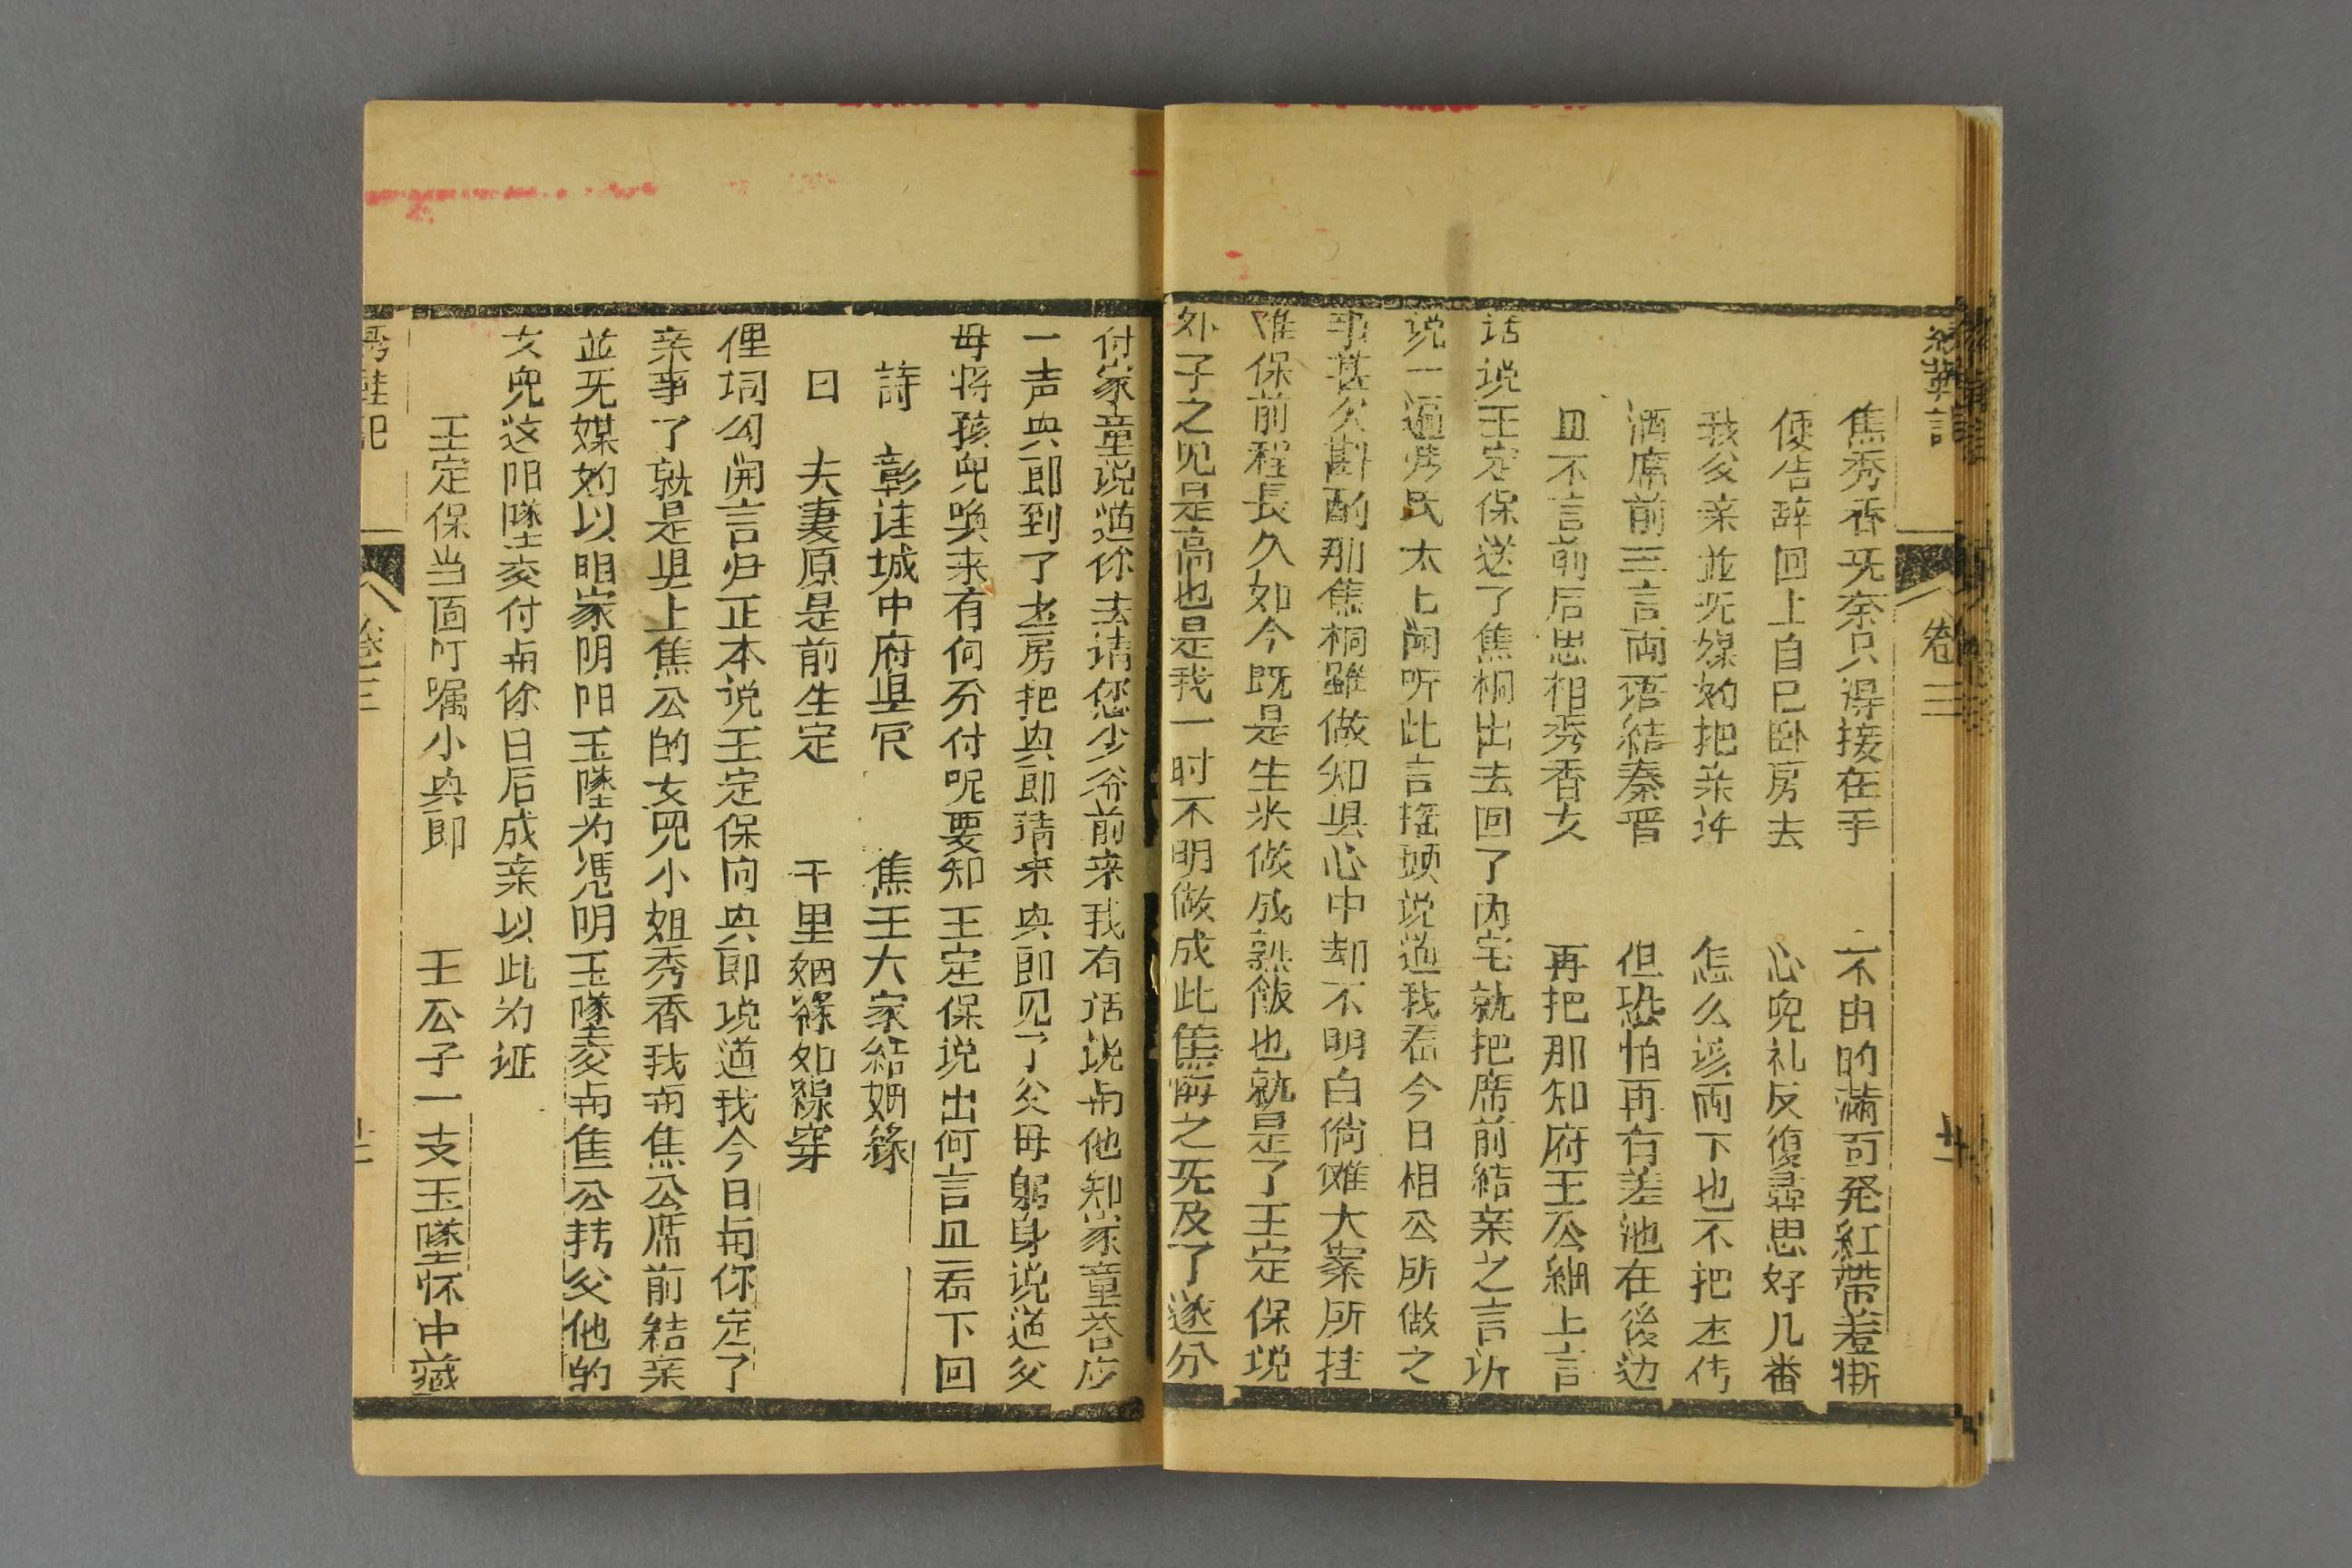 卷三
焦秀香旡奈只得接在手 不由的滿面発紅帶羞慚
便告辞回上自已卧房去 心兜礼反復尋思好几番
我父亲並旡媒妁把亲许 怎么该両下也不把柬传
酒席前三言両语結秦晋 但恐怕再有差池在後边
且不言前后思相秀香女 再把那知府王公細上言
话说王定保送了焦桐出去回了内宅就把席前結亲之言訴
说一遍 氏太上闻听此言摇頭说道我看今日相公所做之
事甚欠斟酌那焦桐雖做知县心中却不明白倘傩大案所挂
难保前程長久如今既是生米做成熟飯也就是了王定保说
外子之见是高也是我一时不明做成此焦悔之旡及了遂分
付家童说道你去请您少爷前来我有话说与他知家童答应
一声典郎到了书房把典郎请来典郎见了父母躬身说道父
母将孩兜唤来有何分付呢要知王定保说出何言且看下回
詩 彰诖城中府县官 焦王大家結姻緣
曰 夫妻原是前生定 千里姻緣如線穿
俚词勾開言归正本说王定保向典郎说道我今日与你定了
亲事了就是县上焦公的女兜小姐秀香我与焦公席前結亲
並旡媒妁以明家阴阳玉墜为憑明玉墜交与焦公持父他的
女兜这阳墜交付与你日后成亲以此为证
王定保当面叮嘱小典郎 王公子一支玉墜怀中藏
卷三